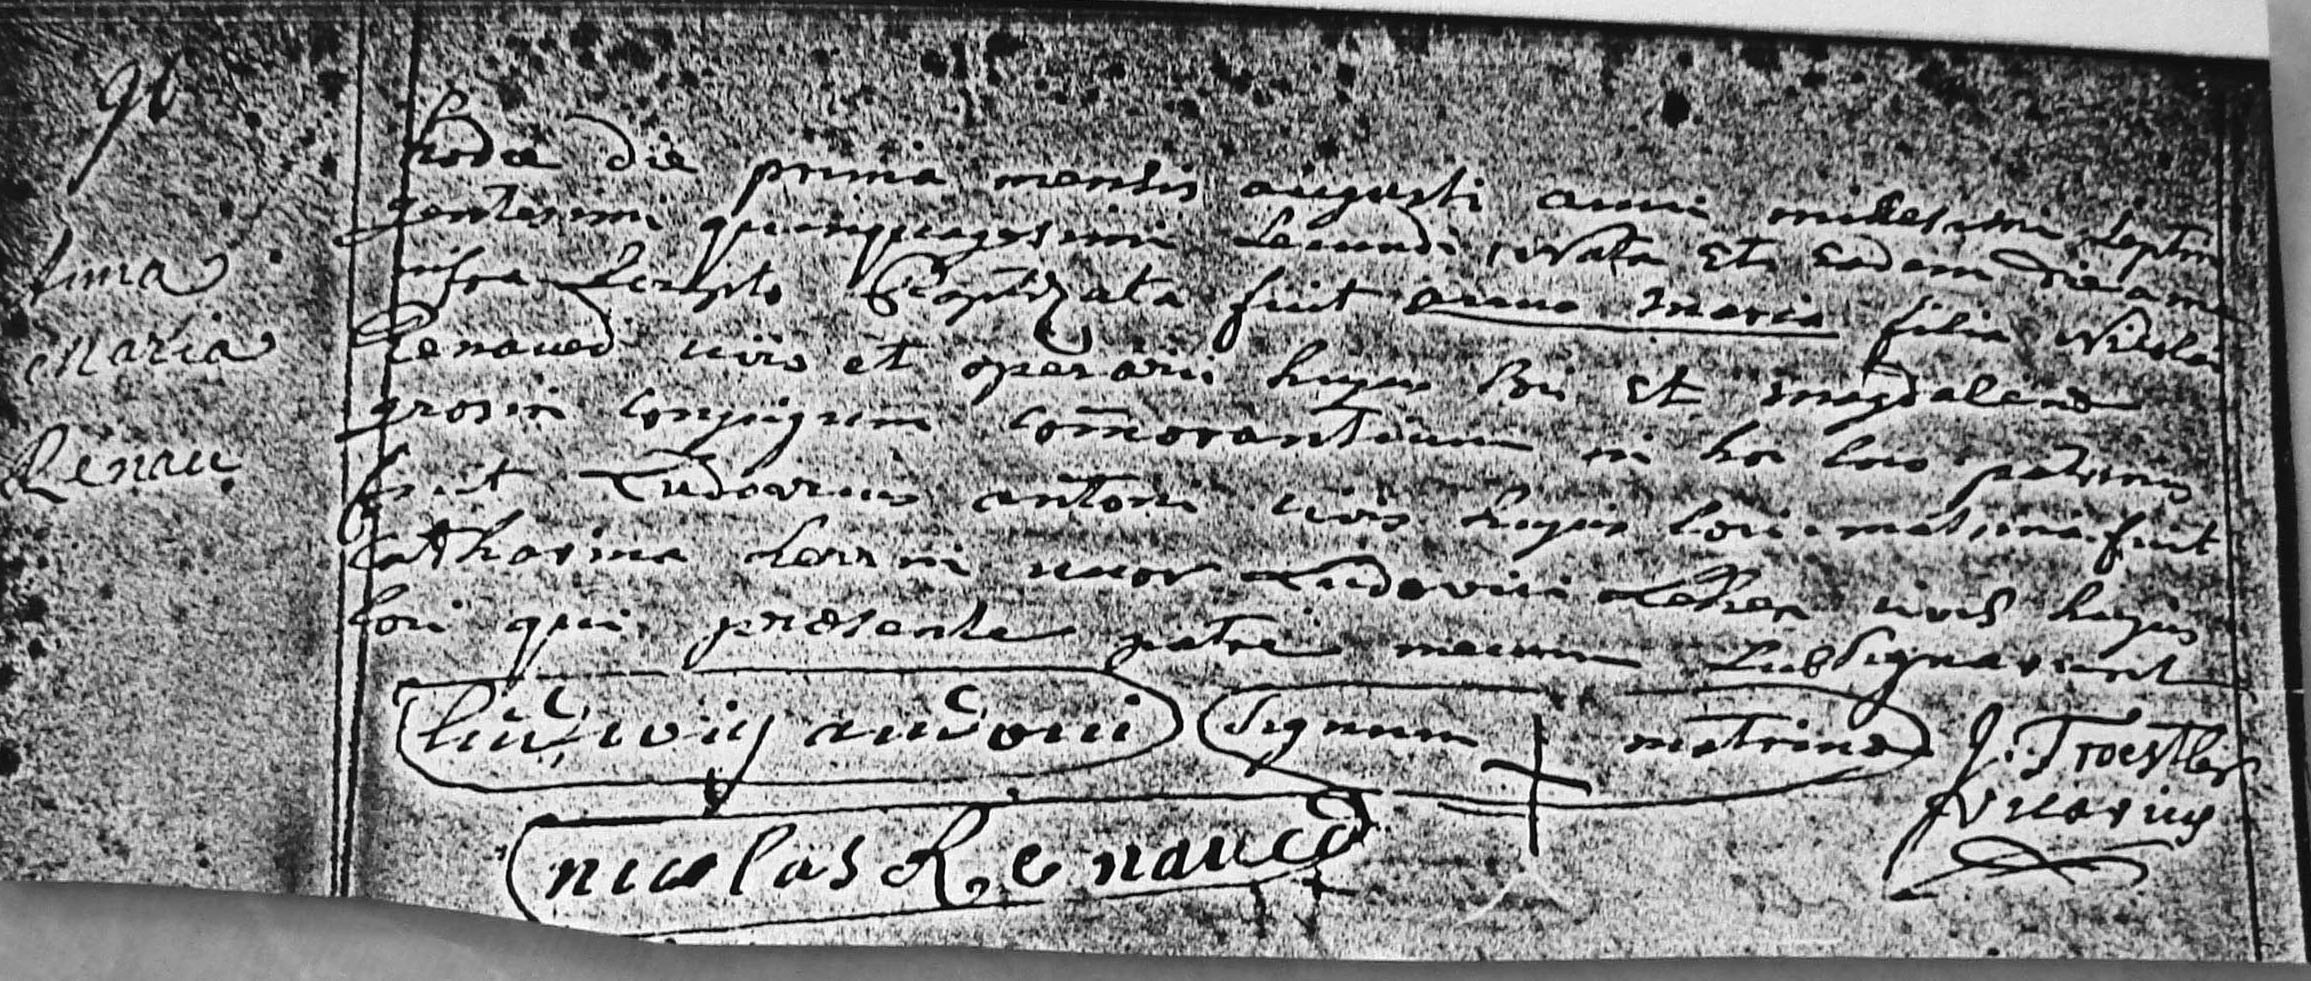 96
Anna
Maria
Renau
hodie die prima mensis augusti anni millesimi septin
gentesimi quinquagesimi secundi Nata Et Eadem die a me
infra scripto Baptizata fuit anna maria filia Nicolai
Renaued civis et operarii hujus loci Et magdalenæ
grosin conjugum com̄orantium in hoc loco patrinus
fuit Ludovicus antoni civis hujus loci matrina fuit
Catharina uxor Ludovici civis hujus
loci qui præsente patre mecum subsignarunt
ludwig andoni signum + matrinæ J. Troestler
vicarius
nicolas Renaued